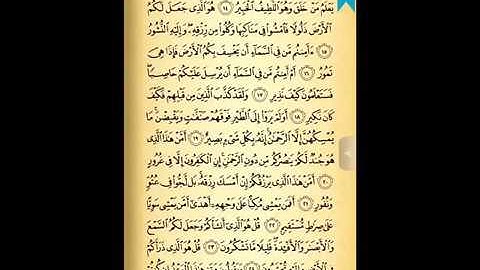 يَعْلَمُ مَنْ خَلَقَ وَهُوَ اللَّطِيفُ الْخَبِيرُ ١٤ هُوَ الَّذِي جَعَلَ لَكُمُ
الْأَرْضَ ذَلُولًا فَامْشُوا فِي مَنَاكِبِهَا وَكُلُوا مِن رِّزْقِهِ وَإِلَيْهِ النُّشُورُ
١٥ ءَأَمِنتُم مَّن فِي السَّمَاءِ أَن يَخْسِفَ بِكُمُ الْأَرْضَ فَإِذَا هِيَ
تَمُورُ ١٦ أَمْ أَمِنتُم مَّن فِي السَّمَاءِ أَن يُرْسِلَ عَلَيْكُمْ حَاصِبًا
فَسَتَعْلَمُونَ كَيْفَ نَذِيرِ ١٧ وَلَقَدْ كَذَّبَ الَّذِينَ مِن قَبْلِهِمْ فَكَيْفَ
كَانَ نَكِيرِ ١٨ أَوَلَمْ يَرَوْا إِلَى الطَّيْرِ فَوْقَهُمْ صَافَّاتٍ وَيَقْبِضْنَ مَا
يُمْسِكُهُنَّ إِلَّا الرَّحْمَٰنُ إِنَّهُ بِكُلِّ شَيْءٍ بَصِيرٌ ١٩ أَمَّنْ هَٰذَا الَّذِي
هُوَ جُندٌ لَّكُمْ يَنصُرُكُم مِّن دُونِ الرَّحْمَٰنِ إِنِ الْكَافِرُونَ إِلَّا فِي غُرُورٍ
٢٠ أَمَّنْ هَٰذَا الَّذِي يَرْزُقُكُمْ إِنْ أَمْسَكَ رِزْقَهُ بَل لَّجُّوا فِي عُتُوٍّ
وَنُفُورٍ ٢١ أَفَمَن يَمْشِي مُكِبًّا عَلَىٰ وَجْهِهِ أَهْدَىٰ أَمَّن يَمْشِي سَوِيًّا
عَلَىٰ صِرَاطٍ مُّسْتَقِيمٍ ٢٢ قُلْ هُوَ الَّذِي أَنشَأَكُمْ وَجَعَلَ لَكُمُ السَّمْعَ
وَالْأَبْصَارَ وَالْأَفْئِدَةَ قَلِيلًا مَّا تَشْكُرُونَ ٢٣ قُلْ هُوَ الَّذِي ذَرَأَكُمْ